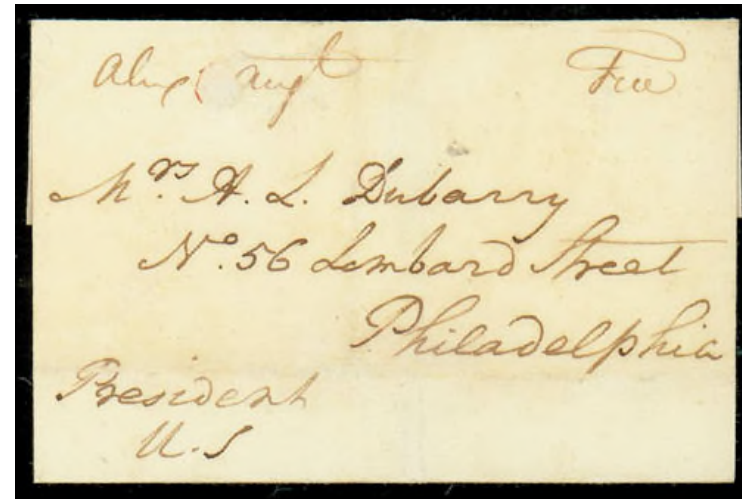 Alexª Augt Free
Mrs. A. L. Dubarry
No. 56 Lombard Street
Philadelphia
President
U.S